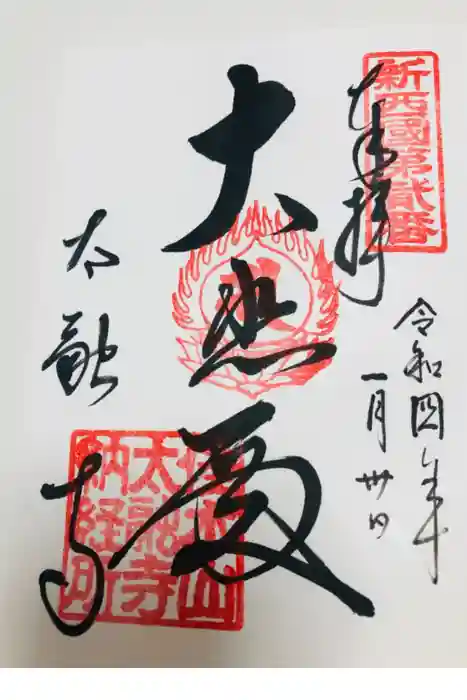 新西國第貳番
奉拝
令和四年
一月卅日
大悲殿
太融寺
佳木山
太融寺
納経所